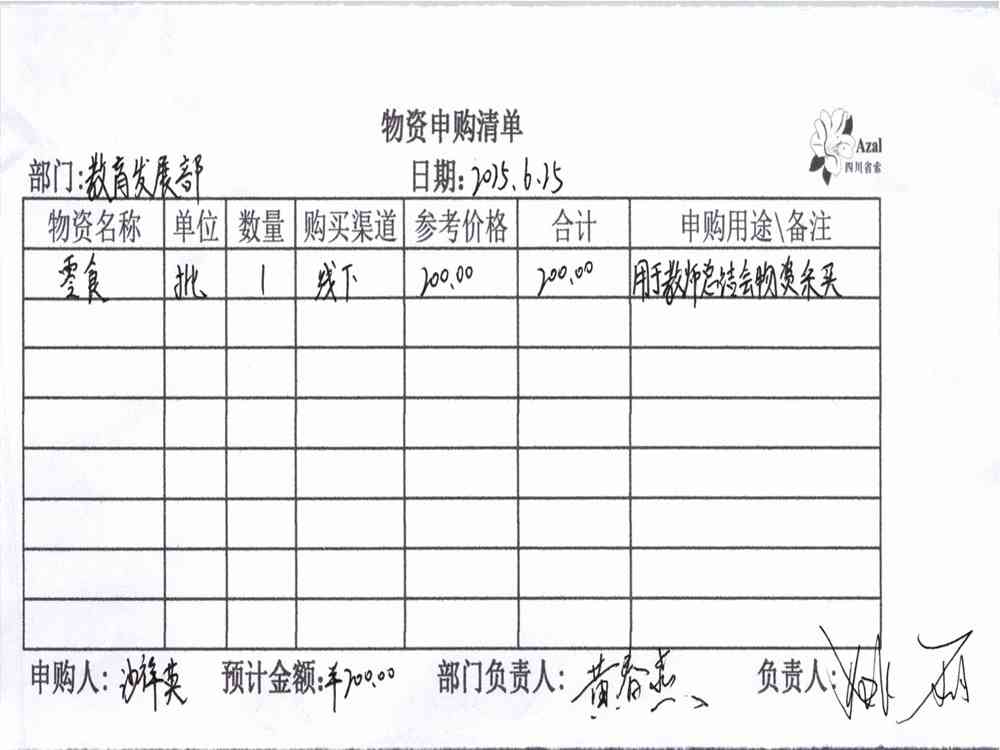 物资申购清单
Azal
四川省索
部门:教育发展部 日期:2025.6.25
物资名称 单位 数量 购买渠道 参考价格 合计 申购用途\备注
零食 批 1 线下 200.00 200.00 用于教师总结会物资采买
申购人:沙祥英 预计金额:¥200.00 部门负责人:黄春燕 负责人: